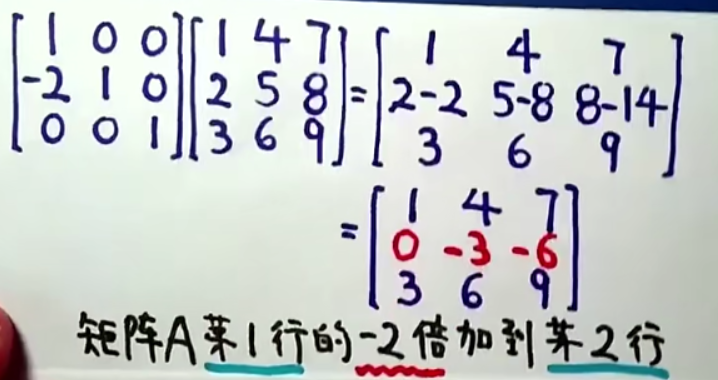 [1 0 0; -2 1 0; 0 0 1][1 4 7; 2 5 8; 3 6 9]=[1 4 7; 2-2 5-8 8-14; 3 6 9]
=[1 4 7; 0 -3 -6; 3 6 9]
矩阵A第1行的-2倍加到第2行